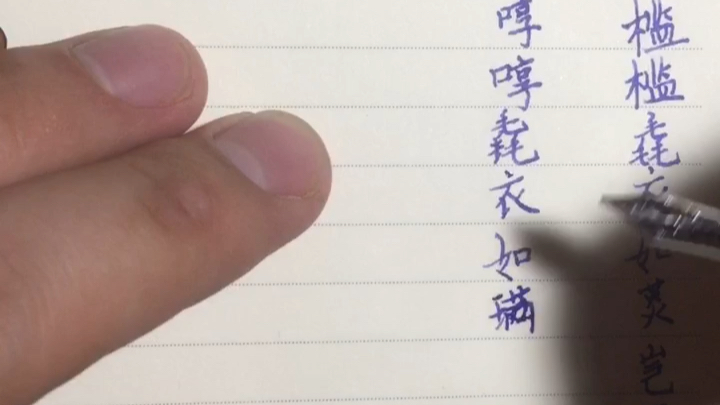 槛槛毳衣如菼岂
啍啍毳衣如璊